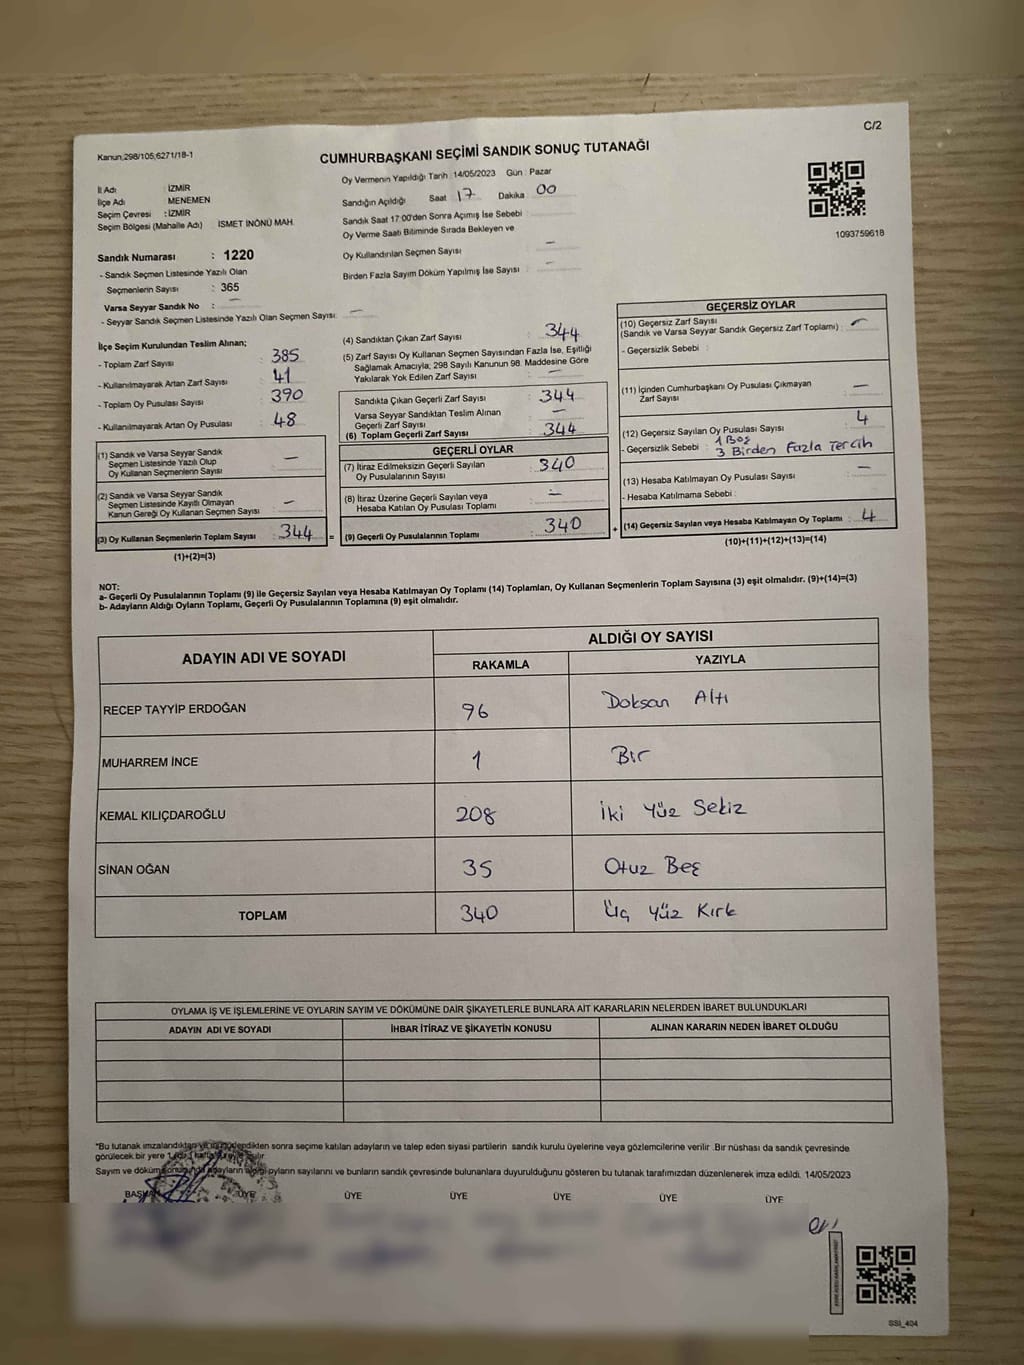 C/2
Kanun;298/105;6271/18-1
CUMHURBAŞKANI SEÇİMİ SANDIK SONUÇ TUTANAĞI
İl Adı : İZMİR
İlçe Adı : MENEMEN
Seçim Çevresi : İZMİR
Seçim Bölgesi (Mahalle Adı) İSMET İNÖNÜ MAH.
Oy Vermenin Yapıldığı Tarih : 14/05/2023 Gün : Pazar
Sandığın Açıldığı Saat 17 Dakika 00
Sandık Saat 17:00'den Sonra Açımış İse Sebebi :
Oy Verme Saati Bitiminde Sırada Bekleyen ve
Oy Kullandırılan Seçmen Sayısı : —
Birden Fazla Sayım Döküm Yapılmış İse Sayısı : —
1093759618
Sandık Numarası : 1220
- Sandık Seçmen Listesinde Yazılı Olan
Seçmenlerin Sayısı : 365
Varsa Seyyar Sandık No : —
- Seyyar Sandık Seçmen Listesinde Yazılı Olan Seçmen Sayısı: —
İlçe Seçim Kurulundan Teslim Alınan;
- Toplam Zarf Sayısı : 385
- Kullanılmayarak Artan Zarf Sayısı : 41
- Toplam Oy Pusulası Sayısı : 390
- Kullanılmayarak Artan Oy Pusulası : 48
(1) Sandık ve Varsa Seyyar Sandık
Seçmen Listesinde Yazılı Olup
Oy Kullanan Seçmenlerin Sayısı : —
(2) Sandık ve Varsa Seyyar Sandık
Seçmen Listesinde Kayıtlı Olmayan
Kanun Gereği Oy Kullanan Seçmen Sayısı : —
(3) Oy Kullanan Seçmenlerin Toplam Sayısı : 344 =
(1)+(2)=(3)
(4) Sandıktan Çıkan Zarf Sayısı : 344
(5) Zarf Sayısı Oy Kullanan Seçmen Sayısından Fazla İse, Eşitliği
Sağlamak Amacıyla; 298 Sayılı Kanunun 98. Maddesine Göre
Yakılarak Yok Edilen Zarf Sayısı : —
Sandıkta Çıkan Geçerli Zarf Sayısı : 344
Varsa Seyyar Sandıktan Teslim Alınan
Geçerli Zarf Sayısı : —
(6) Toplam Geçerli Zarf Sayısı : 344
GEÇERLİ OYLAR
(7) İtiraz Edilmeksizin Geçerli Sayılan
Oy Pusulalarının Sayısı : 340
(8) İtiraz Üzerine Geçerli Sayılan veya
Hesaba Katılan Oy Pusulası Toplamı : —
(9) Geçerli Oy Pusulalarının Toplamı : 340 +
GEÇERSİZ OYLAR
(10) Geçersiz Zarf Sayısı
(Sandık ve Varsa Seyyar Sandık Geçersiz Zarf Toplamı) : —
- Geçersizlik Sebebi :
(11) İçinden Cumhurbaşkanı Oy Pusulası Çıkmayan
Zarf Sayısı : —
(12) Geçersiz Sayılan Oy Pusulası Sayısı : 4
- Geçersizlik Sebebi : 1 Boş
3 Birden Fazla Tercih
(13) Hesaba Katılmayan Oy Pusulası Sayısı : —
- Hesaba Katılmama Sebebi :
(14) Geçersiz Sayılan veya Hesaba Katılmayan Oy Toplamı : 4
(10)+(11)+(12)+(13)=(14)
NOT:
a- Geçerli Oy Pusulalarının Toplamı (9) ile Geçersiz Sayılan veya Hesaba Katılmayan Oy Toplamı (14) Toplamları, Oy Kullanan Seçmenlerin Toplam Sayısına (3) eşit olmalıdır. (9)+(14)=(3)
b- Adayların Aldığı Oyların Toplamı, Geçerli Oy Pusulalarının Toplamına (9) eşit olmalıdır.
ADAYIN ADI VE SOYADI
ALDIĞI OY SAYISI
RAKAMLA YAZIYLA
RECEP TAYYİP ERDOĞAN 96 Doksan Altı
MUHARREM İNCE 1 Bir
KEMAL KILIÇDAROĞLU 208 İki Yüz Sekiz
SİNAN OĞAN 35 Otuz Beş
TOPLAM 340 Üç Yüz Kırk
OYLAMA İŞ VE İŞLEMLERİNE VE OYLARIN SAYIM VE DÖKÜMÜNE DAİR ŞİKAYETLERLE BUNLARA AİT KARARLARIN NELERDEN İBARET BULUNDUKLARI
ADAYIN ADI VE SOYADI İHBAR İTİRAZ VE ŞİKAYETİN KONUSU ALINAN KARARIN NEDEN İBARET OLDUĞU
"Bu tutanak imzalandıktan ve mühürlendikten sonra seçime katılan adayların ve talep eden siyasi partilerin sandık kurulu üyelerine veya gözlemcilerine verilir. Bir nüshası da sandık çevresinde
görülecek bir yere
Sayım ve döküm sonunda adayların aldığı oyların sayılarını ve bunların sandık çevresinde bulunanlara duyurulduğunu gösteren bu tutanak tarafımızdan düzenlenerek imza edildi. 14/05/2023
BAŞKAN ÜYE ÜYE ÜYE ÜYE ÜYE ÜYE
SSI_404